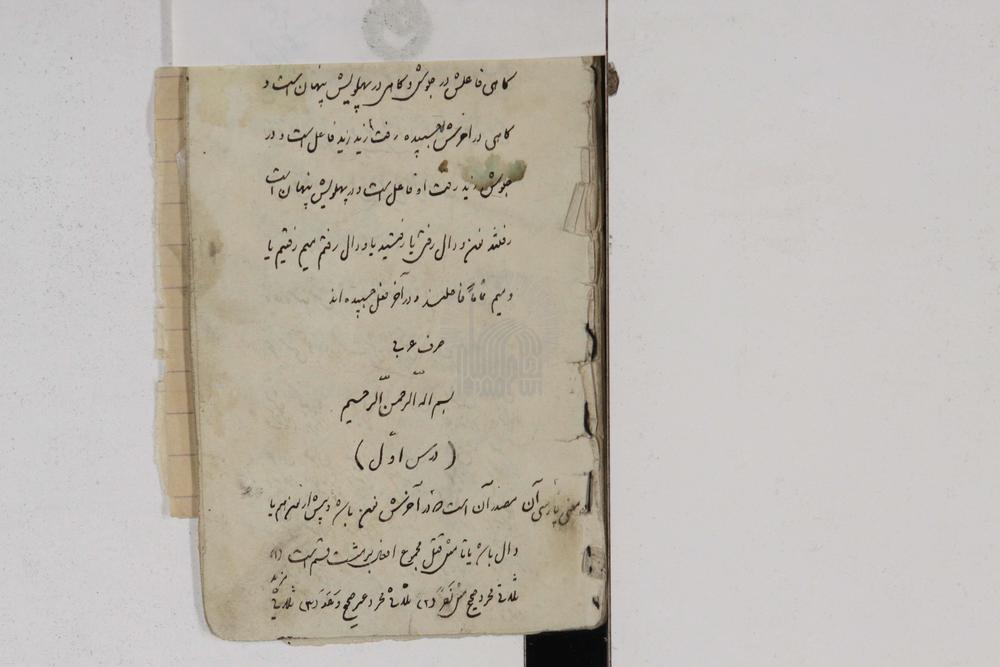 گاهی فاعلش در جلوش و گاهی در پهلویش پنهان است و
گاهی در آخرش چسبیده رفت زید زید فاعل است و در
جلوش زید رفت او فاعل است و در پهلویش پنهان است
رفتند نون و دال رفتی یا رفتید یا و دال رفتم میم رفتیم یا
و میم تماماً فاعلند و در آخر فعل چسبیده اند
صرف عربی
بسم الله الرحمن الرحیم
(درس اول)
معنی پارسی آن مصدر آن است که در آخرش نون باشد و پیش از نون هم یا
دال باشد یا تا مثل قتل مجموع افعال بر هشت قسم است (۱)
ثلاثی مجرد صحیح مثل نصر (۲) ثلاثی مجرد غیر صحیح وعد (۳) ثلاثی
مزید